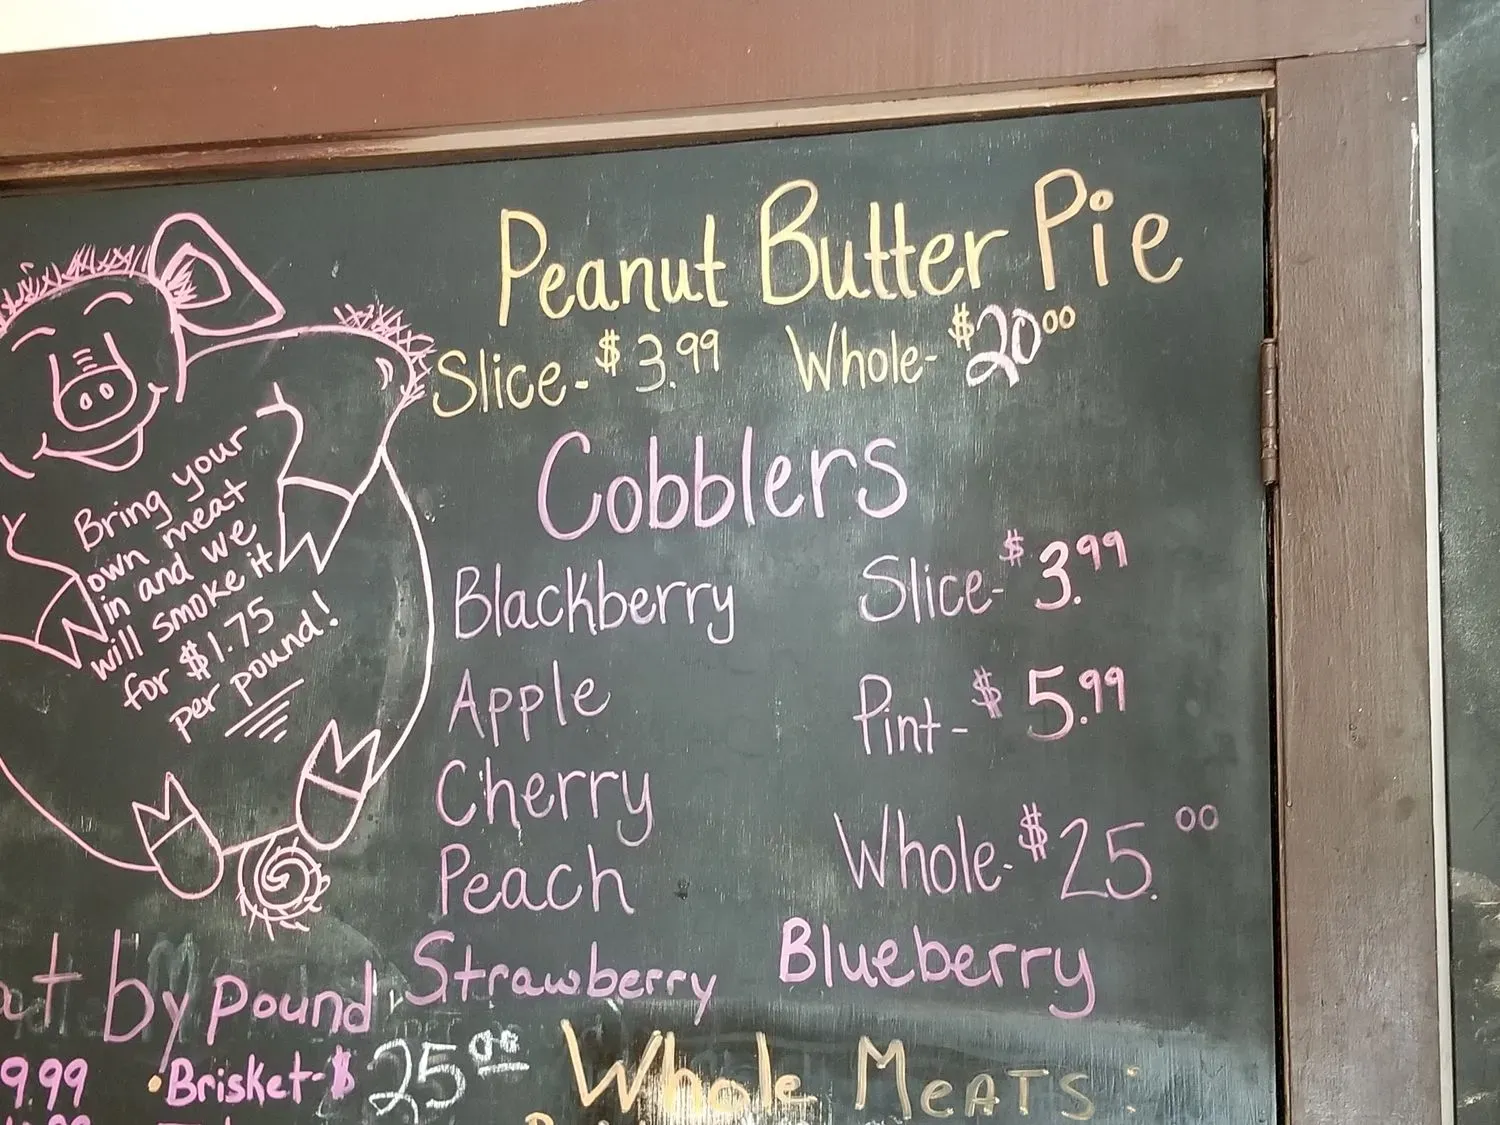 Peanut Butter Pie
Slice-$3.99 Whole-$20.00
Bring your
own meat
in and we
will smoke it
for $1.75
per pound!
Cobblers
Blackberry Slice-$3.99
Apple Pint-$5.99
Cherry
Peach Whole-$25.00
Strawberry Blueberry
by pound
9.99 •Brisket-$25.00
Whole Meats: